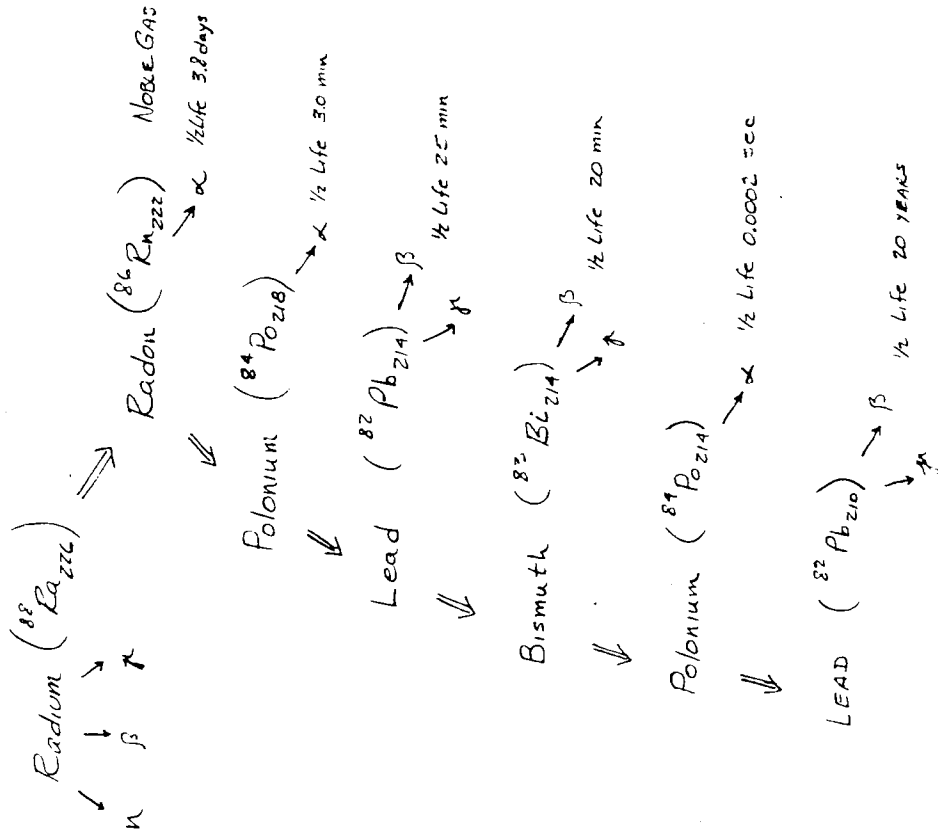 Radium (⁸⁸Ra₂₂₆)
n β γ
Radon (⁸⁶Rn₂₂₂) NOBLE GAS
α ½ Life 3.8 days
Polonium (⁸⁴Po₂₁₈)
α ½ Life 3.0 min
Lead (⁸²Pb₂₁₄)
γ β ½ Life 25 min
Bismuth (⁸³Bi₂₁₄)
γ β ½ Life 20 min
Polonium (⁸⁴Po₂₁₄)
α ½ Life 0.0002 sec
LEAD (⁸²Pb₂₁₀)
γ β ½ Life 20 YEARS